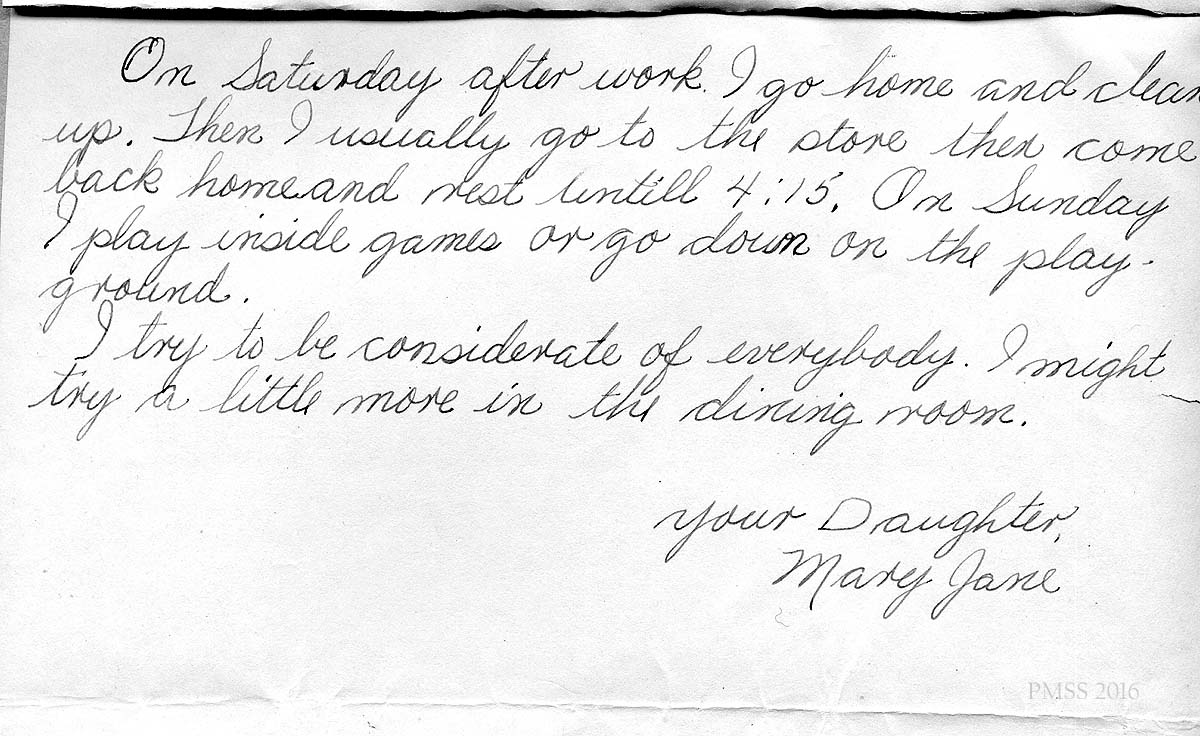 On Saturday after work I go home and clean
up. Then I usually go to the store then come
back home and rest untill 4:15. On Sunday
I play inside games or go down on the play-
ground.
I try to be considerate of everybody. I might
try a little more in the dining room.
your Daughter,
Mary Jane
PMSS 2016